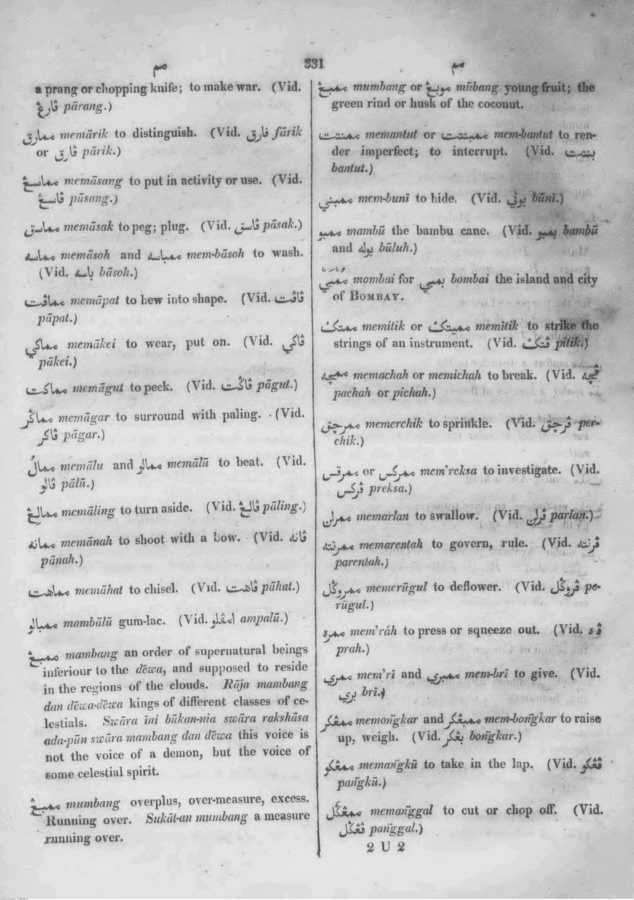 مم
331
مم
a prang or chopping knife; to make war. (Vid.
ڤارڠ pārang.)
ممارق memārik to distinguish. (Vid. فارق fārik
or ڤارق pārik.)
مماسڠ memāsang to put in activity or use. (Vid.
ڤاسڠ pāsang.)
مماسق memāsak to peg; plug. (Vid. ڤاسق pāsak.)
مماسه memāsoh and ممباسه mem-bāsoh to wash.
(Vid. باسه bāsoh.)
مماڤت memāpat to hew into shape. (Vid. ڤاڤت
pāpat.)
مماكي memākei to wear, put on. (Vid. ڤاكي
pākei.)
مماكت memāgut to peek. (Vid. ڤاگت pāgut.)
مماگر memāgar to surround with paling. (Vid.
ڤاگر pāgar.)
ممال memālu and ممالو memālū to beat. (Vid.
ڤالو pālū.)
ممالڠ memāling to turn aside. (Vid. ڤالڠ pāling.)
ممانه memānah to shoot with a bow. (Vid. ڤانه
pānah.)
مماهت memāhat to chisel. (Vid. ڤاهت pāhat.)
ممبالو mambālū gum-lac. (Vid. امڤلو ampalū.)
ممبڠ mambang an order of supernatural beings
inferiour to the dēwa, and supposed to reside
in the regions of the clouds. Rāja mambang
dan dēwa-dēwa kings of different classes of ce-
lestials. Swāra īni būkan-nia swāra rakshāsa
ada-pūn swāra mambang dan dēwa this voice is
not the voice of a demon, but the voice of
some celestial spirit.
ممبڠ mumbang overplus, over-measure, excess.
Running over. Sukāt-an mumbang a measure
running over.
ممبڠ mumbang or موبڠ mūbang young fruit; the
green rind or husk of the coconut.
ممنتت memantut or ممبنتت mem-bantut to ren-
der imperfect; to interrupt. (Vid. بنتت
bantut.)
ممبني mem-bunī to hide. (Vid. بوني būnī.)
ممبو mambū the bambu cane. (Vid. بمبو bambū
and بوله būluh.)
ممبي mombai for بمبي bombai the island and city
of BOMBAY.
ممتك memitik or مميتك memītik to strike the
strings of an instrument. (Vid. ڤتك pītik.)
ممچه memachah or memichah to break. (Vid. ڤچه
pachah or pichah.)
ممرچق memerchik to sprinkle. (Vid. ڤرچق per-
chik.)
ممرقس or ممركس mem'reksa to investigate. (Vid.
ڤركس preksa.)
ممرلن memarlan to swallow. (Vid. ڤرلن parlan.)
ممرنته memarentah to govern, rule. (Vid. ڤرنته
parentah.)
ممروگل memerūgul to deflower. (Vid. ڤروگل pe-
rūgul.)
ممره mem'rāh to press or squeeze out. (Vid. ڤره
prah.)
ممري mem'rī and ممبري mem-brī to give. (Vid.
بري brī.)
ممڠكر memongkar and ممبڠكر mem-bongkar to raise
up, weigh. (Vid. بڠكر bongkar.)
ممڠكو memangkū to take in the lap. (Vid. ڤڠكو
pangkū.)
ممڠگل memanggal to cut or chop off. (Vid.
ڤڠگل panggal.)
2 U 2